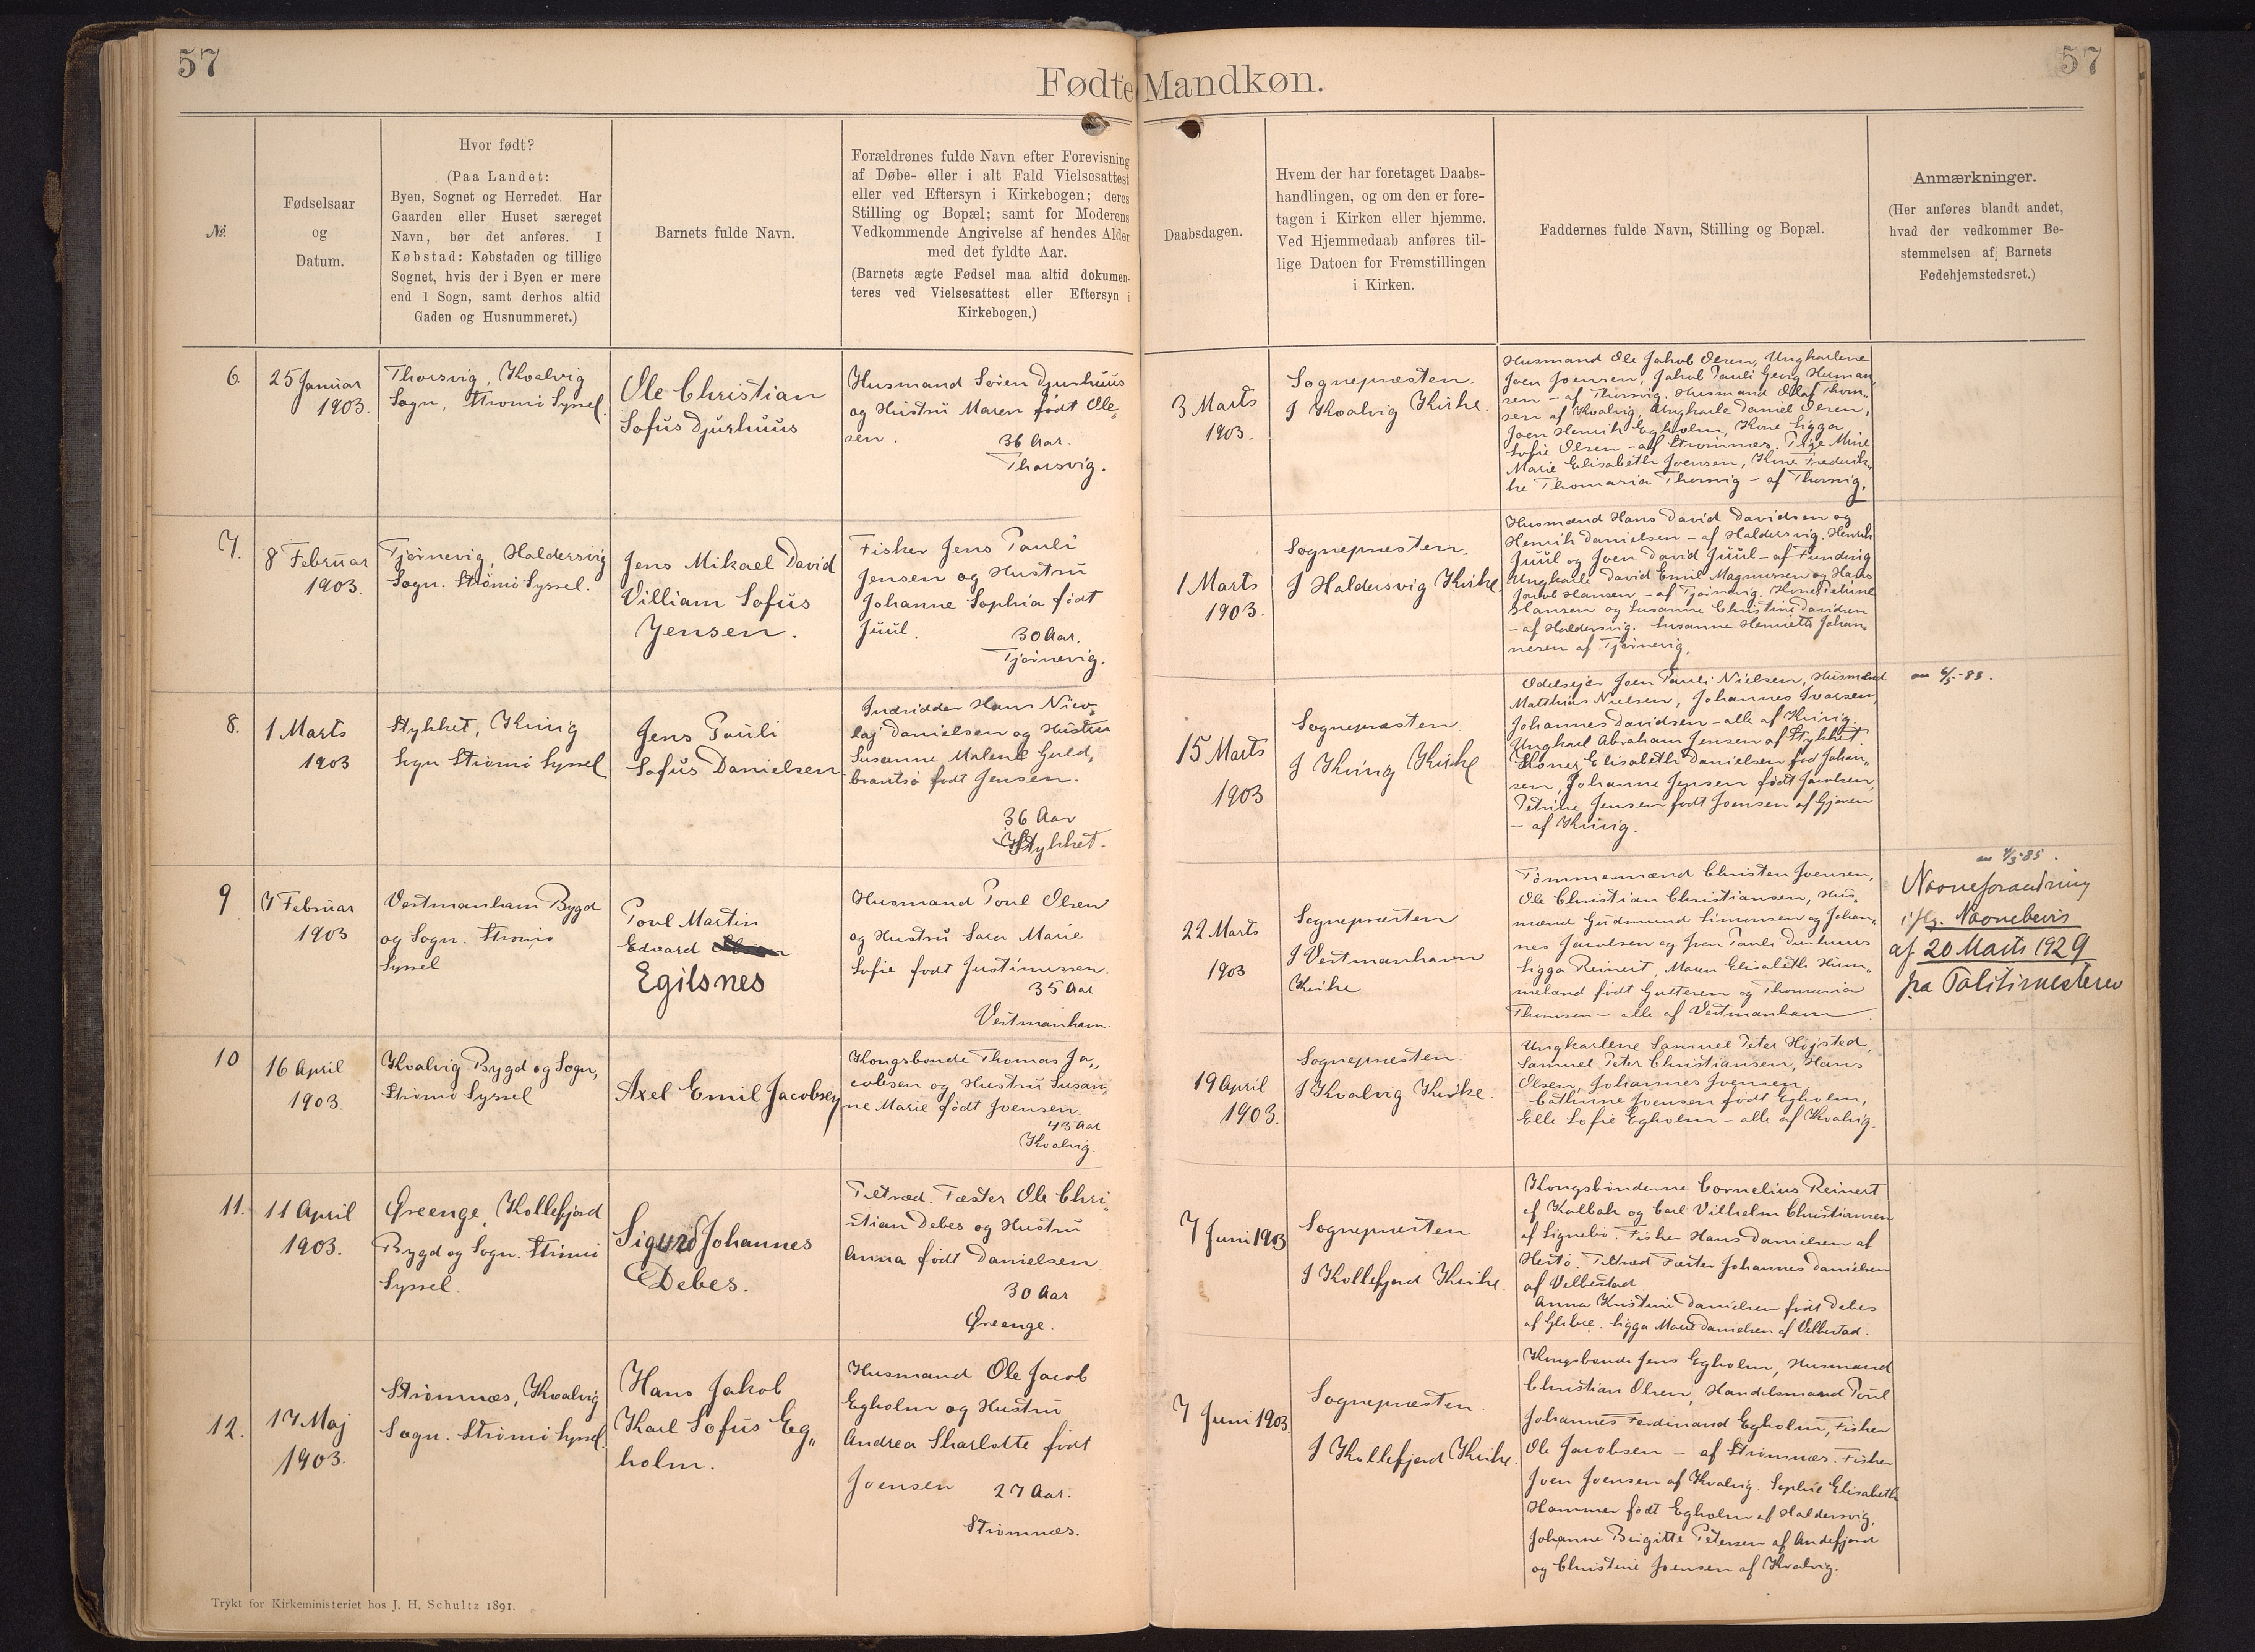 57
57
Fødte Mandkøn.
№.
Fødselsaar
og
Datum.
Hvor født?
(Paa Landet:
Byen, Sognet og Herredet. Har
Gaarden eller Huset særeget
Navn, bør det anføres. I
Købstad: Købstaden og tillige
Sognet, hvis der i Byen er mere
end 1 Sogn, samt derhos altid
Gaden og Husnummeret.)
Barnets fulde Navn.
Forældrenes fulde Navn efter Forevisning
af Døbe- eller i alt Fald Vielsesattest
eller ved Eftersyn i Kirkebogen; deres
Stilling og Bopæl; samt for Moderens
Vedkommende Angivelse af hendes Alder
med det fyldte Aar.
(Barnets ægte Fødsel maa altid dokumen-
teres ved Vielsesattest eller Eftersyn i
Kirkebogen.)
Daabsdagen.
Hvem der har foretaget Daabs-
handlingen, og om den er fore-
tagen i Kirken eller hjemme.
Ved Hjemmedaab anføres til-
lige Datoen for Fremstillingen
i Kirken.
Faddernes fulde Navn, Stilling og Bopæl.
Anmærkninger.
(Her anføres blandt andet,
hvad der vedkommer Be-
stemmelsen af Barnets
Fødehjemstedsret.)
6.
25 Januar
1903.
Thorsvig, Kvalvig
Sogn, Strømø Syssel.
Ole Christian
Sofus Djurhuus
Husmand Søren Djurhuus
og Hustru Maren født Ole-
sen.
36 Aar.
Thorsvig.
3 Marts
1903.
Sognepræsten.
I Kvalvig Kirke.
Husmand Ole Jakob Olsen, Ungkarlene
Joen Joensen, Jakob Pauli Georg Herman-
sen - af Thorsvig. Husmand Olaf Thom-
sen af Kvalvig, Ungkarle Daniel Olsen,
Joen Henrik Egholm, Kone Sigga
Sofie Olsen - af Strømnæs. Pige Mine
Marie Elisabeth Joensen, Kone Frederik-
ke Thomasia Thorsvig - af Thorsvig.
7.
8 Februar
1903.
Tjørnevig, Haldersvig
Sogn. Strømø Syssel.
Jens Mikael David
Villiam Sofus
Jensen.
Fisker Jens Pauli
Jensen og Hustru
Johanne Sophia født
Juul.
30 Aar.
Tjørnevig.
1 Marts
1903.
Sognepræsten.
I Haldersvig Kirke.
Husmænd Hans David Davidsen og
Henrik Danielsen - af Haldersvig, Henrik
Juul og Joen David Juul - af Funding
Ungkarle David Emil Magnussen og Hans
Jacob Hansen - af Tjørnevig. Kone Petrine
Hansen og Susanne Christine Davidsen
- af Haldersvig. Susanne Henriette Johan-
nesen af Tjørnevig.
8.
1 Marts
1903
Stykket, Kvivig
Sogn Strømø Syssel
Jens Pauli
Sofus Danielsen.
Indsidder Hans Nico-
laj Danielsen og Hustru
Susanne Malene Guld-
brantsø født Jensen.
36 Aar
Stykket.
15 Marts
1903
Sognepræsten
I Kvivig Kirke
Odelsejer Joen Pauli Nielsen, Husmænd
Matthias Nielsen, Johannes Ivarsen,
Johannes Davidsen - alle af Kvivig.
Ungkarl Abraham Jensen af Stykket.
Koner Elisabeth Danielsen fød Johan-
sen, Johanne Jensen født Jacobsen,
Petrine Jensen født Joensen af Gjaren
- af Kvivig.
9
7 Februar
1903
Vestmanham Bygd
og Sogn. Strømø
Syssel
Poul Martin
Edvard
Egilsnes
Husmand Poul Olsen
og Hustru Sara Marie
Sofie født Justinussen.
35 Aar
Vestmanhavn.
22 Marts
1903
Sognepræsten
I Vestmanhavn
Kirke
Tømmermænd Christen Joensen,
Ole Christian Christiansen, Hus-
mænd Gudmund Simonsen og Johan-
nes Jacobsen og Joen Pauli Djurhuus
Sigga Reinert, Maren Elisabeth Hum-
meland født Guttesen og Thomasia
Thomsen - alle af Vestmanhavn.
Navneforandring
iflg. Navnebevis
af 20 Marts 1929
fra Politimesteren
10
16 April
1903.
Kvalvig Bygd og Sogn,
Strømø Syssel
Axel Emil Jacobsen
Kongsbonde Thomas Ja-
cobsen og Hustru Susan-
ne Marie født Joensen.
43 Aar
Kvalvig.
19 April
1903.
Sognepræsten.
I Kvalvig Kirke.
Ungkarlene Samuel Peter Højsted,
Samuel Peter Christiansen, Hans
Olsen, Johannes Joensen,
Cathrine Joensen født Egholm,
Elle Sofie Egholm - alle af Kvalvig.
11.
11 April
1903.
Øreenge, Kollefjord
Bygd og Sogn. Strømø
Syssel.
Sigurd Johannes
Debes.
Tiltræd. Fæster Ole Chri-
stian Debes og Hustru
Anna født Danielsen
30 Aar
Øreenge.
7 Juni 1903
Sognepræsten
I Kollefjord Kirke.
Kongsbønderne Cornelius Reinert
af Kalbak og Carl Vilhelm Christiansen
af Signebø. Fisker Hans Danielsen af
Hestø. Tiltræd Fæster Johannes Danielsen
af Velbestad
Anna Kristine Danielsen født Debes
af Glibre. Sigga Marie Danielsen af Velbestad.
12.
17 Maj
1903.
Strømnæs, Kvalvig
Sogn. Strømø Syssel.
Hans Jakob
Karl Sofus Eg-
holm.
Husmand Ole Jacob
Egholm og Hustru
Andrea Sharlotte født
Joensen 27 Aar.
Strømnæs.
7 Juni 1903.
Sognepræsten.
I Kollefjord Kirke.
Kongsbonde Jens Egholm, Husmand
Christian Olsen, Handelsmand Poul
Johannes Ferdinand Egholm, Fisker
Ole Jacobsen - af Strømnæs. Fisker
Joen Joensen af Kvalvig. Sophie Elisabeth
Hammer født Egholm af Haldersvig.
Johanne Birgitte Petersen af Andefjord
og Christine Joensen af Kvalvig.
Trykt for Kirkeministeriet hos J. H. Schultz 1891.